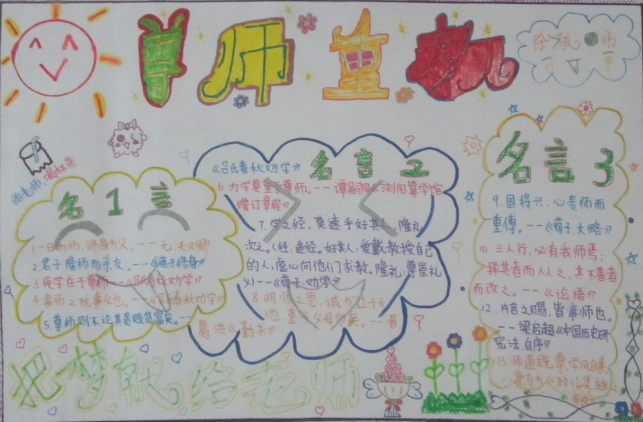 尊师重教
名言1
1.一日为师,终身为父。--元 关汉卿
2.君子隆师而亲友。--《荀子修身》
3.疾学在于尊师--《吕氏春秋劝学》
4.事师之犹事父也。--《吕氏春秋劝学》
5.尊师则不论其贵贱贫富矣。--
《吕氏春秋劝学》
名言2
6.为学莫重于尊师。--谭嗣同《浏阳算学馆
增订章程》
7.学之经,莫速乎好其人,隆礼
次之。(经:途径。好其人:爱戴教授自己
的人,虚心向他们求教。隆礼:尊崇礼
义)--《荀子·劝学》
8.明师之恩,诚为过于天
地,重于父母多矣。--晋
葛洪《勤求》
名言3
9.国将兴,心是师而
重傅。--《荀子·大略》
10.三人行,必有我师焉;
择其善者而从之,其不善者
而改之。--《论语》
12.片言之赐,皆事师也。
--梁启超《中国历史研
究法 自序》
13.师道既尊,学风自善
把梦献给老师